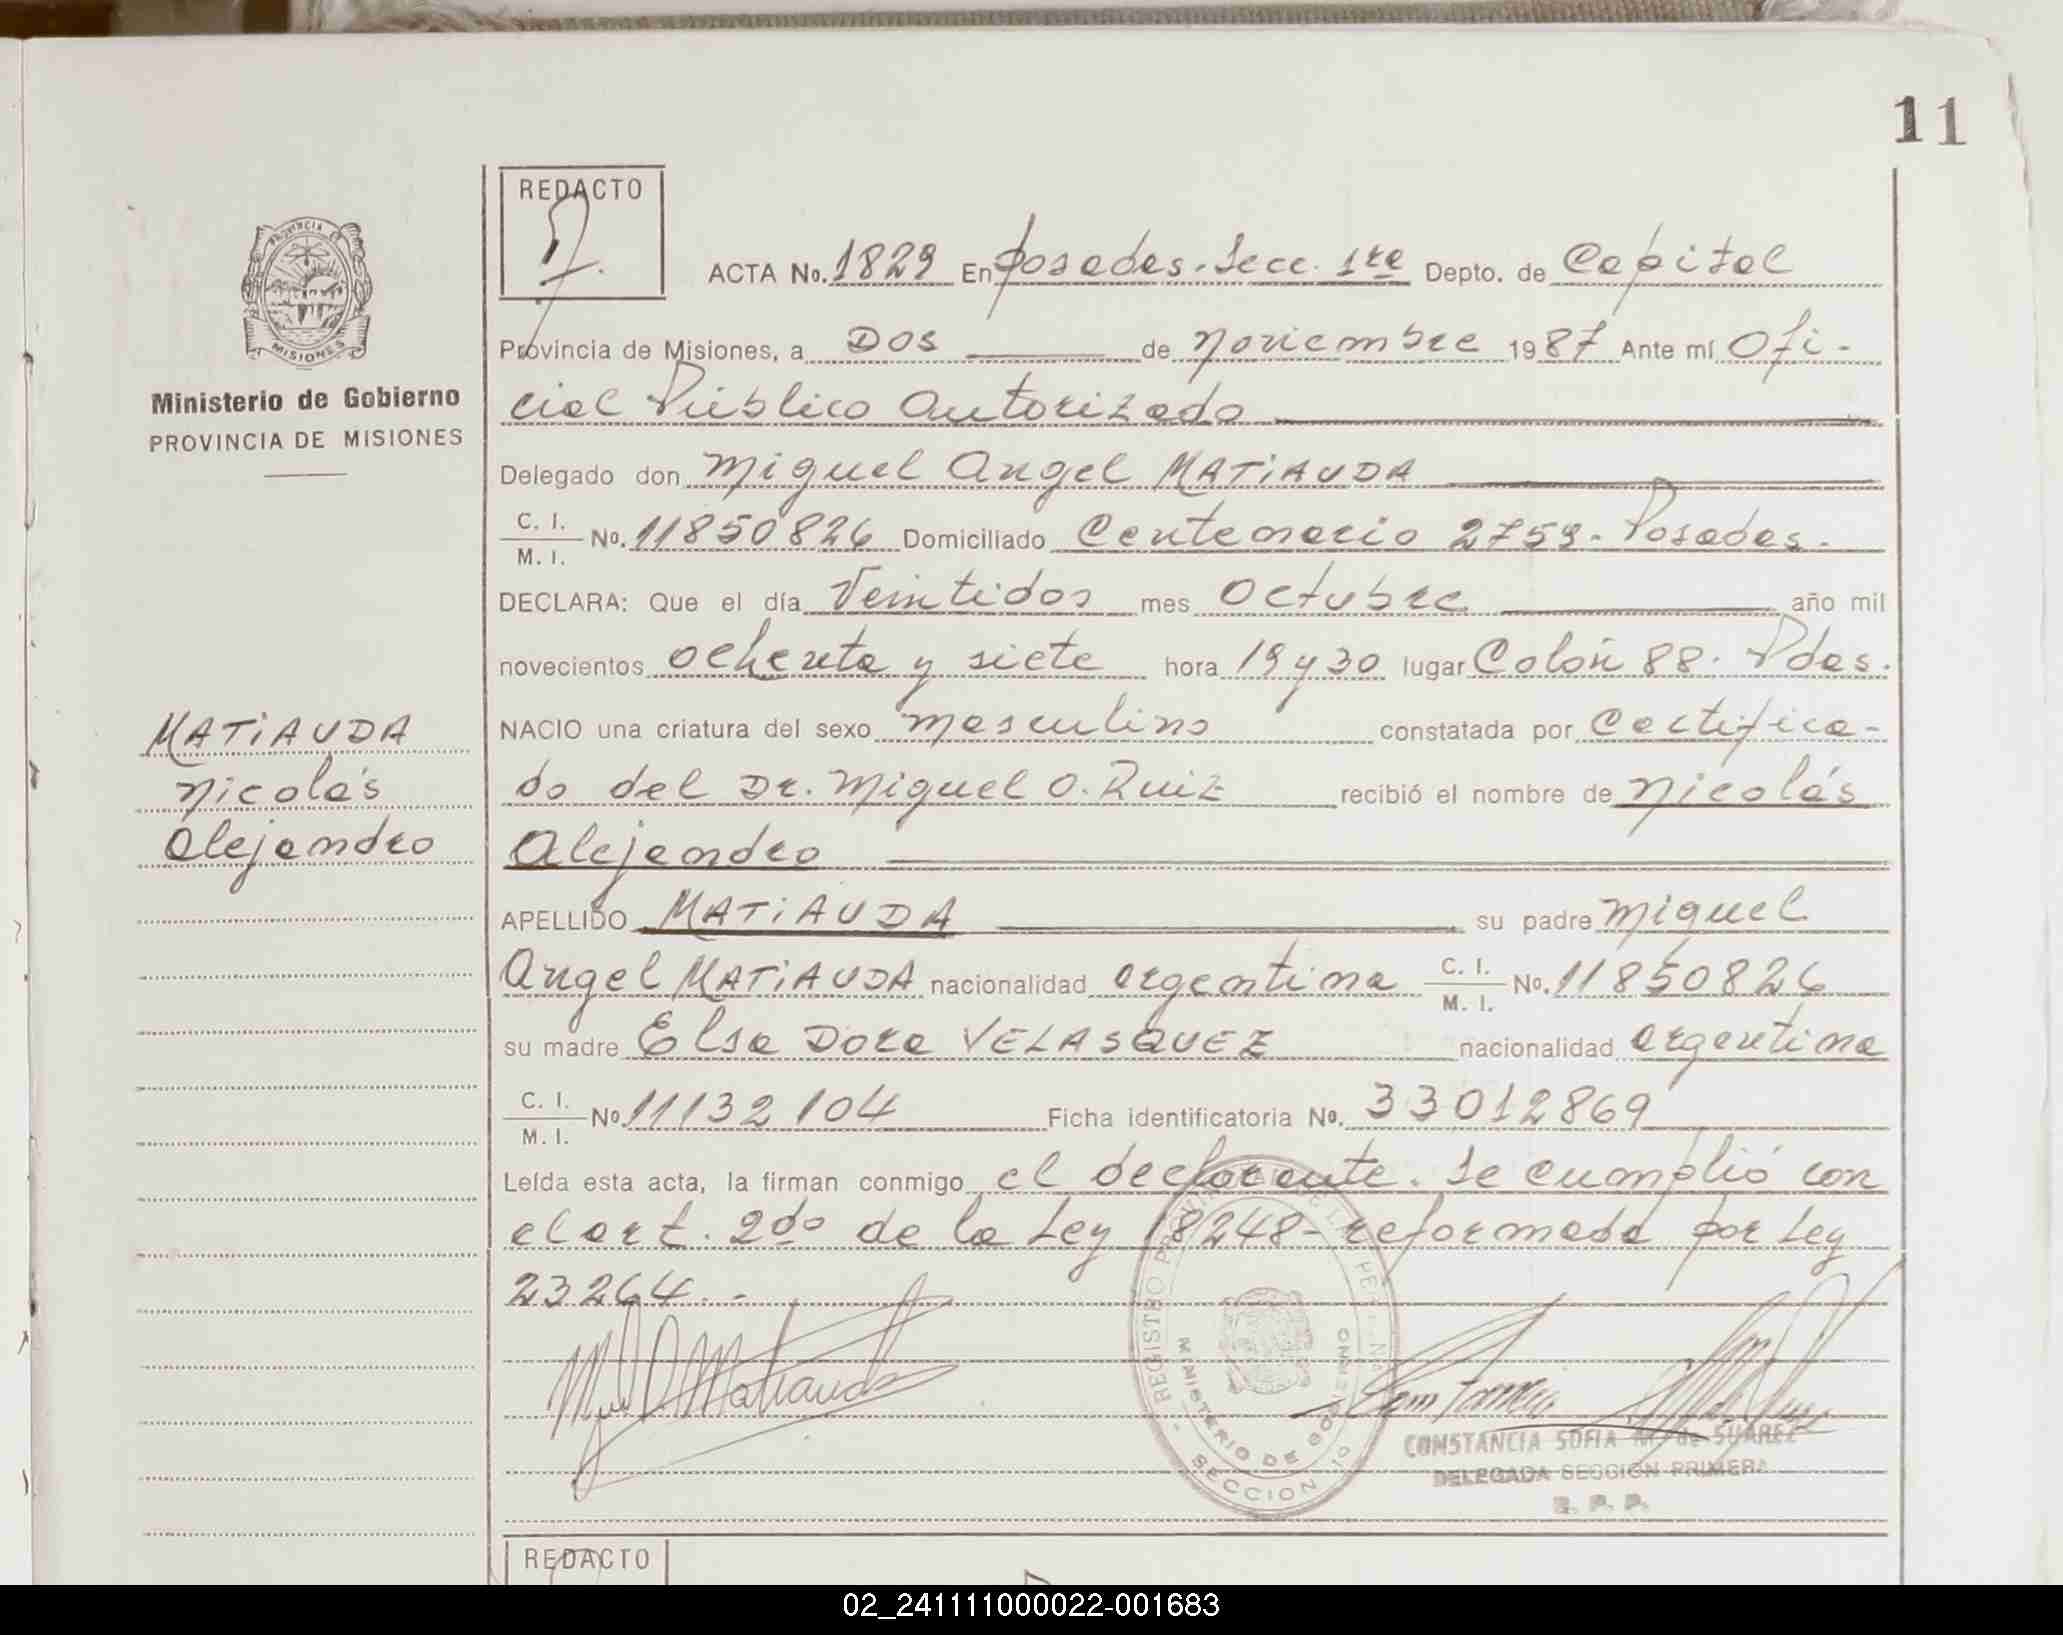 11
REDACTO
ACTA No. 1829 En Posadas. Secc. 1ra Depto. de Capital
PROVINCIA DE
MISIONES
Provincia de Misiones, a Dos de Noviembre 1987 Ante mí Ofi-
Ministerio de Gobierno
PROVINCIA DE MISIONES
cial Público Autorizado
Delegado don Miguel Angel MATIAUDA
C. I.
M. I. No. 11850826 Domiciliado Centenario 2759. Posadas.
DECLARA: Que el día Veintidos mes Octubre año mil
novecientos ochenta y siete hora 19 y 30 lugar Colón 88. Pdas.
MATIAUDA
Nicolás
Alejandro
NACIO una criatura del sexo masculino constatada por Certifica-
do del Dr. Miguel O. Ruiz recibió el nombre de Nicolás
Alejandro
APELLIDO MATIAUDA su padre Miguel
Angel MATIAUDA nacionalidad argentina C. I.
M. I. No. 11850826
su madre Elsa Dora VELASQUEZ nacionalidad argentina
C. I.
M. I. No 11132104 Ficha identificatoria No. 33012869
Leída esta acta, la firman conmigo el declarante. Se cumplió con
el art. 2do de la Ley 18248 - reformada por Ley
23264. -
REGISTRO
MINISTERIO DE GOBIERNO
SECCION 1º
CONSTANCIA SOFIA M. de SUAREZ
DELEGADA SECCION PRIMERA
R. P. P.
REDACTO
02_241111000022-001683